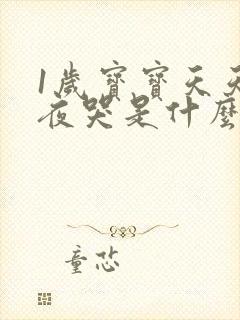 1歲寶寶天天
夜哭是什麼
童恐